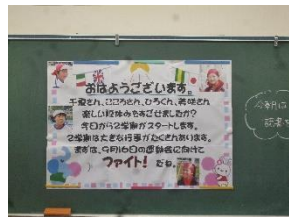 おはようございます。
千夏さん、こころさん、ひろくん、美咲さん
楽しい夏休みをすごせましたか？
今日から2学期がスタートします。
2学期は大きな行事がたくさんあります。
まずは、9月16日の運動会に向けて
ファイト！ だね。